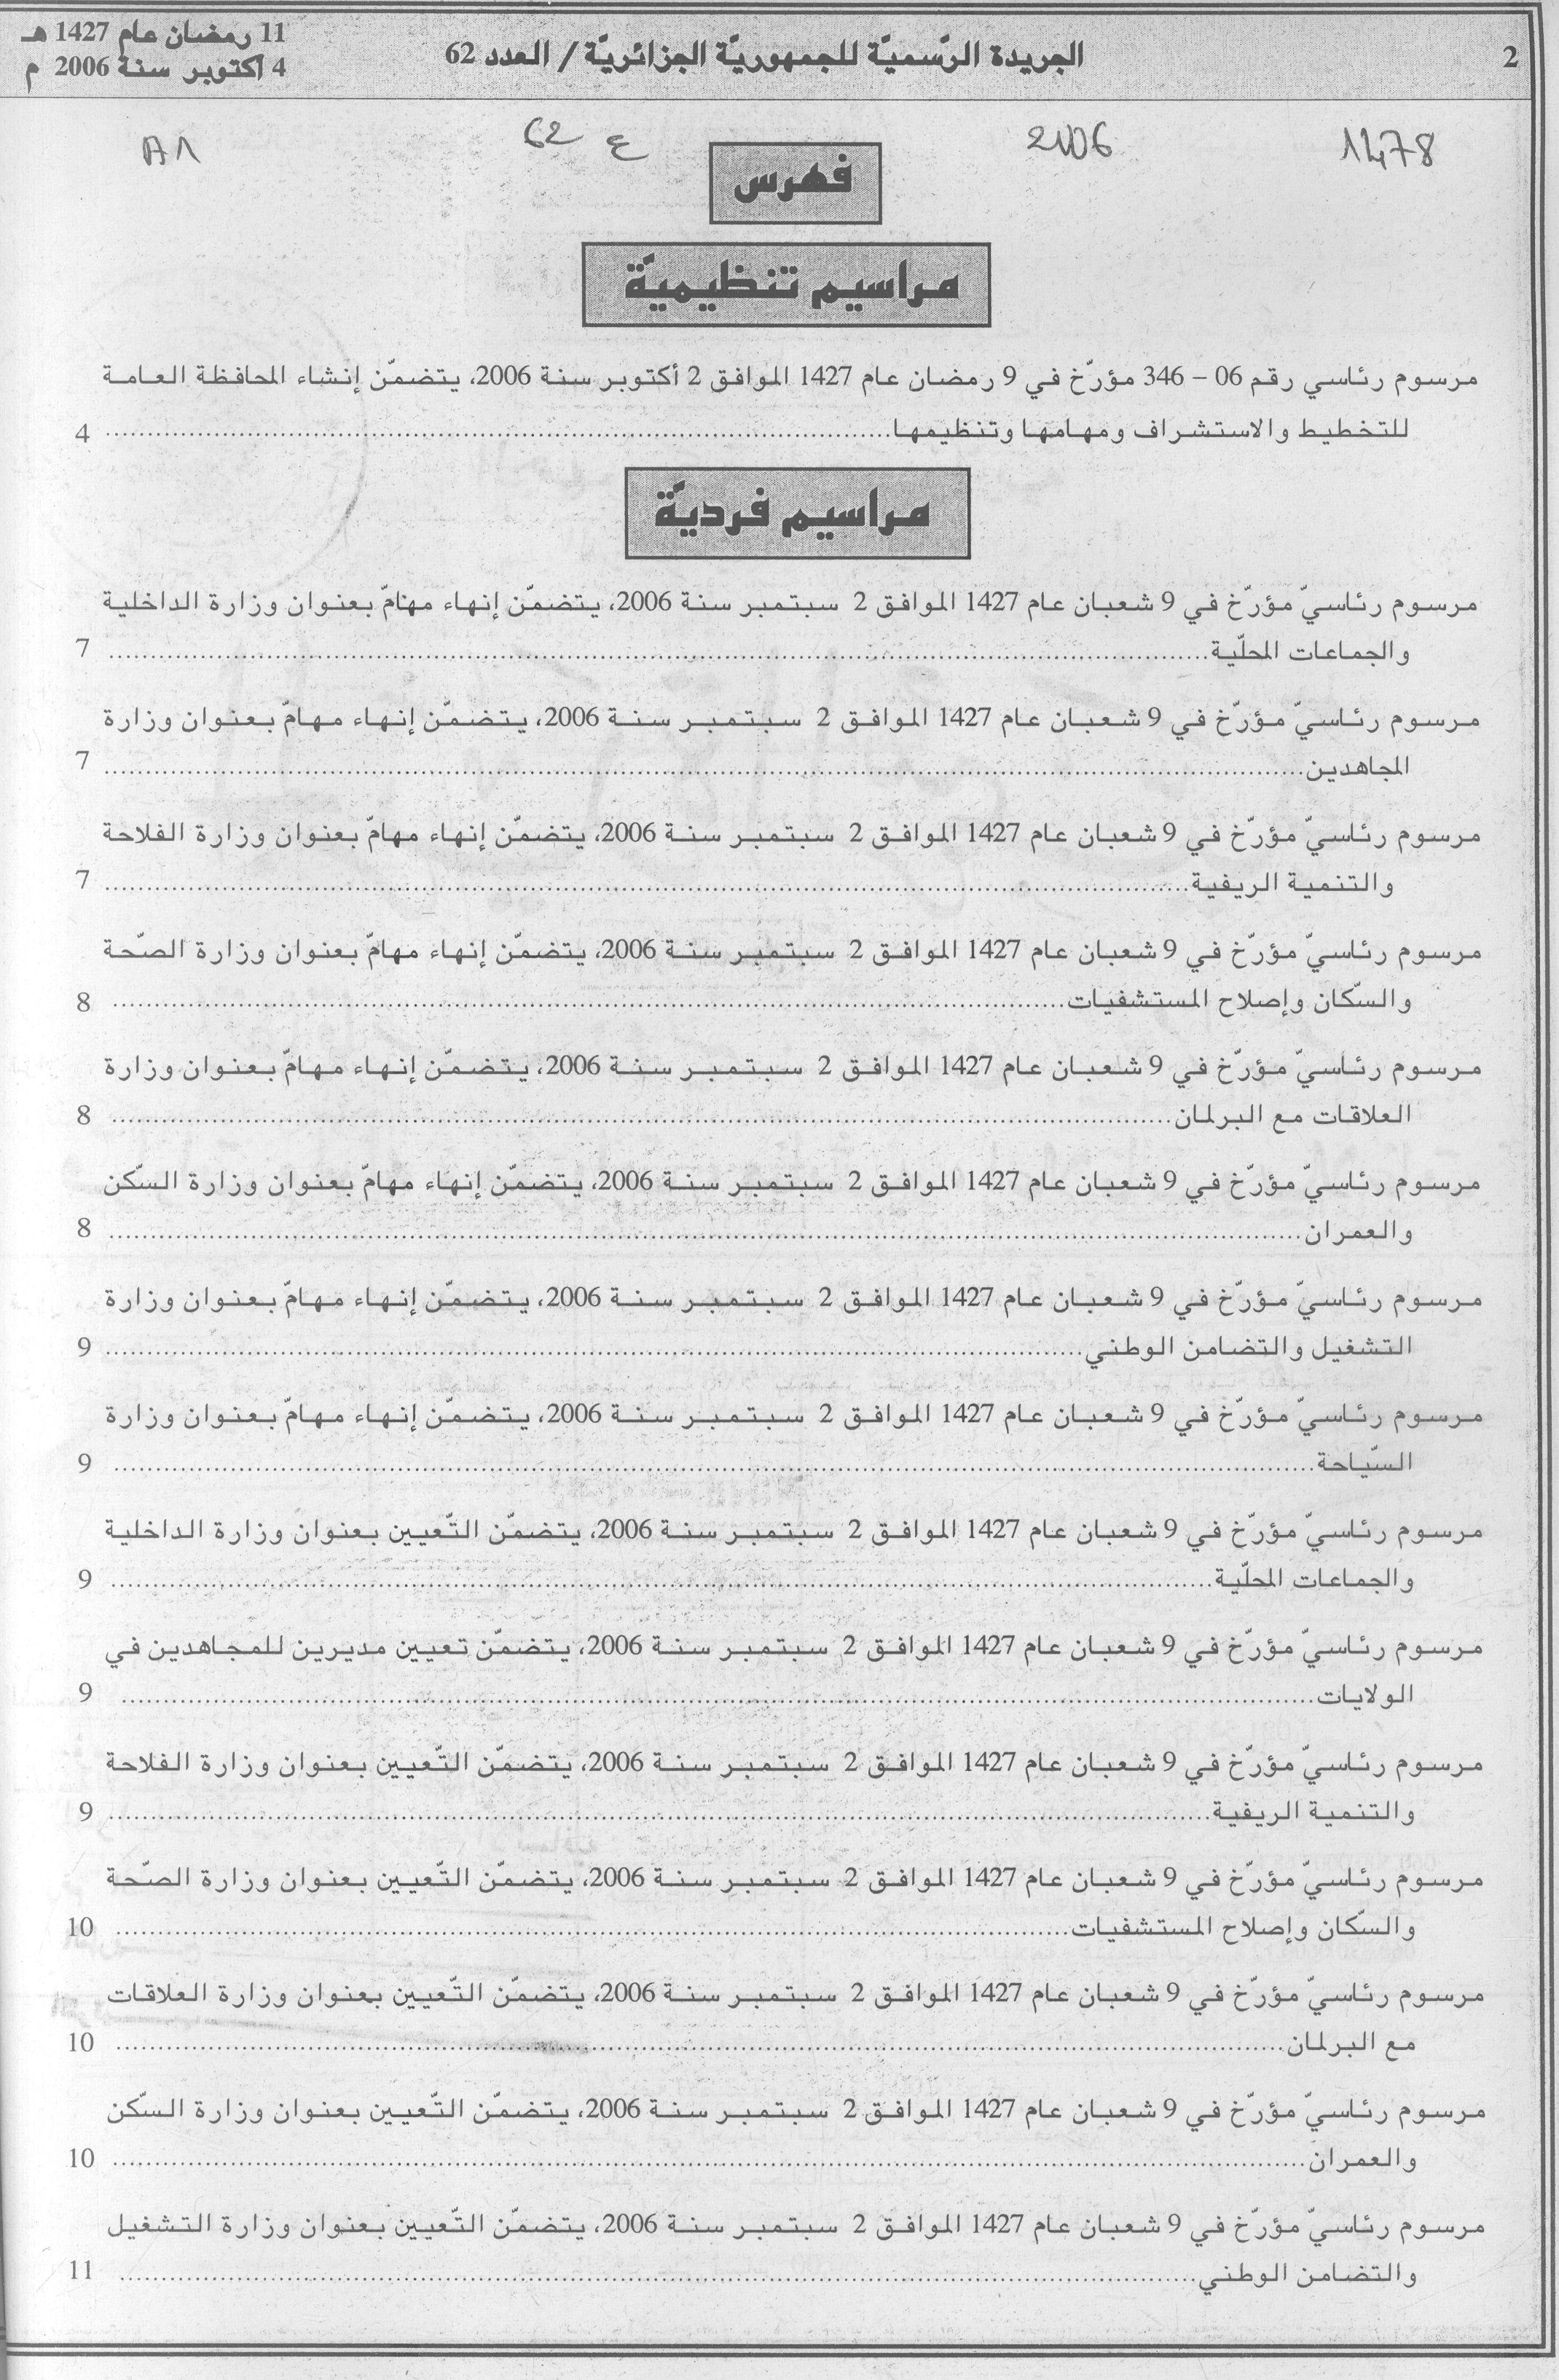 2
الجريدة الرّسميّة للجمهوريّة الجزائريّة / العدد 62
11 رمضان عام 1427 هـ
4 أكتوبر سنة 2006 م
1478
2006
ع 62
A1
فهرس
مراسيم تنظيميّة
مرسوم رئاسي رقم 06 – 346 مؤرّخ في 9 رمضان عام 1427 الموافق 2 أكتوبر سنة 2006، يتضمّن إنشاء المحافظة العامة
للتخطيط والاستشراف ومهامها وتنظيمها 4
مراسيم فرديّة
مرسوم رئاسيّ مؤرّخ في 9 شعبان عام 1427 الموافق 2 سبتمبر سنة 2006، يتضمّن إنهاء مهامّ بعنوان وزارة الداخلية
والجماعات المحلّية 7
مرسوم رئاسيّ مؤرّخ في 9 شعبان عام 1427 الموافق 2 سبتمبر سنة 2006، يتضمّن إنهاء مهامّ بعنوان وزارة
المجاهدين 7
مرسوم رئاسيّ مؤرّخ في 9 شعبان عام 1427 الموافق 2 سبتمبر سنة 2006، يتضمّن إنهاء مهامّ بعنوان وزارة الفلاحة
والتنمية الريفية 7
مرسوم رئاسيّ مؤرّخ في 9 شعبان عام 1427 الموافق 2 سبتمبر سنة 2006، يتضمّن إنهاء مهامّ بعنوان وزارة الصّحة
والسّكان وإصلاح المستشفيات 8
مرسوم رئاسيّ مؤرّخ في 9 شعبان عام 1427 الموافق 2 سبتمبر سنة 2006، يتضمّن إنهاء مهامّ بعنوان وزارة
العلاقات مع البرلمان 8
مرسوم رئاسيّ مؤرّخ في 9 شعبان عام 1427 الموافق 2 سبتمبر سنة 2006، يتضمّن إنهاء مهامّ بعنوان وزارة السّكن
والعمران 8
مرسوم رئاسيّ مؤرّخ في 9 شعبان عام 1427 الموافق 2 سبتمبر سنة 2006، يتضمّن إنهاء مهامّ بعنوان وزارة
التشغيل والتضامن الوطني 9
مرسوم رئاسيّ مؤرّخ في 9 شعبان عام 1427 الموافق 2 سبتمبر سنة 2006، يتضمّن إنهاء مهامّ بعنوان وزارة
السّياحة 9
مرسوم رئاسيّ مؤرّخ في 9 شعبان عام 1427 الموافق 2 سبتمبر سنة 2006، يتضمّن التّعيين بعنوان وزارة الداخلية
والجماعات المحلّية 9
مرسوم رئاسيّ مؤرّخ في 9 شعبان عام 1427 الموافق 2 سبتمبر سنة 2006، يتضمّن تعيين مديرين للمجاهدين في
الولايات 9
مرسوم رئاسيّ مؤرّخ في 9 شعبان عام 1427 الموافق 2 سبتمبر سنة 2006، يتضمّن التّعيين بعنوان وزارة الفلاحة
والتنمية الريفية 9
مرسوم رئاسيّ مؤرّخ في 9 شعبان عام 1427 الموافق 2 سبتمبر سنة 2006، يتضمّن التّعيين بعنوان وزارة الصّحة
والسّكان وإصلاح المستشفيات 10
مرسوم رئاسيّ مؤرّخ في 9 شعبان عام 1427 الموافق 2 سبتمبر سنة 2006، يتضمّن التّعيين بعنوان وزارة العلاقات
مع البرلمان 10
مرسوم رئاسيّ مؤرّخ في 9 شعبان عام 1427 الموافق 2 سبتمبر سنة 2006، يتضمّن التّعيين بعنوان وزارة السّكن
والعمران 10
مرسوم رئاسيّ مؤرّخ في 9 شعبان عام 1427 الموافق 2 سبتمبر سنة 2006، يتضمّن التّعيين بعنوان وزارة التشغيل
والتضامن الوطني 11